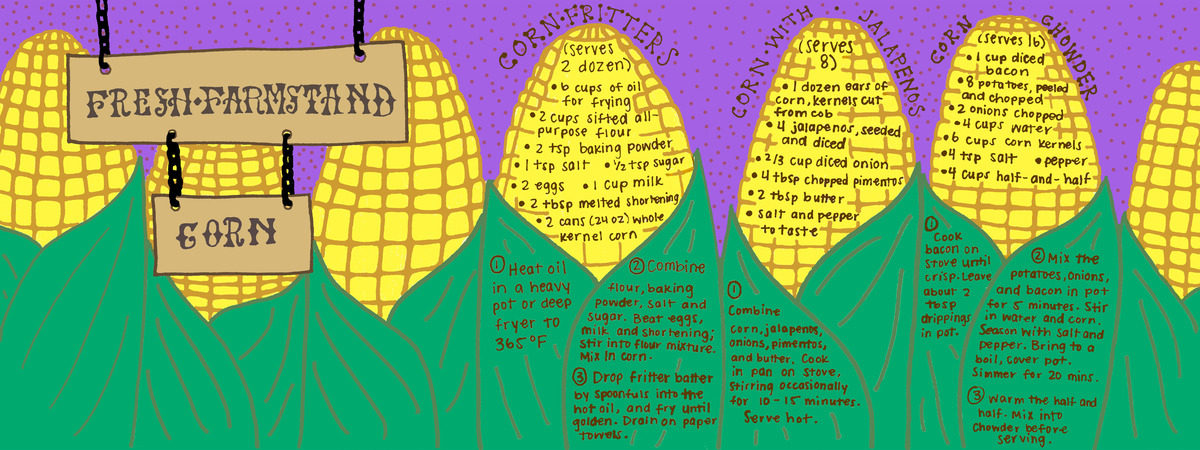 FRESH·FARMSTAND
CORN
CORN·FRITTERS
(serves
2 dozen)
• 6 cups of oil
for frying
• 2 cups sifted all-
purpose flour
• 2 tsp baking powder
• 1 tsp salt • 1/2 tsp sugar
• 2 eggs • 1 cup milk
• 2 tbsp melted shortening
• 2 cans (24 oz) whole
kernel corn
① Heat oil
in a heavy
pot or deep
fryer to
365°F
② Combine
flour, baking
powder, salt and
sugar. Beat eggs,
milk and shortening;
Stir into flour mixture.
Mix in corn.
③ Drop fritter batter
by spoonfuls into the
hot oil, and fry until
golden. Drain on paper
towels.
CORN·WITH · JALAPENOS
(serves
8)
• 1 dozen ears of
corn, kernels cut
from cob
• 4 jalapenos, seeded
and diced
• 2/3 cup diced onion
• 4 tbsp chopped pimentos
• 2 tbsp butter
• salt and pepper
to taste
① 
Combine
corn, jalapenos,
onions, pimentos,
and butter. Cook
in pan on stove,
Stirring occasionally
for 10-15 minutes.
Serve hot.
CORN CHOWDER
(serves 16)
• 1 cup diced
bacon
• 8 potatoes, peeled
and chopped
• 2 onions chopped
• 4 cups water
• 6 cups corn kernels
• 4 tsp salt • pepper
• 4 cups half-and-half
①
Cook
bacon on
stove until
crisp. Leave
about 2
tbsp
drippings
in pot.
② Mix the
potatoes, onions,
and bacon in pot
for 5 minutes. Stir
in water and corn.
Season with salt and
pepper. Bring to a
boil, cover pot.
Simmer for 20 mins.
③ Warm the half and
half. Mix into
Chowder before
serving.